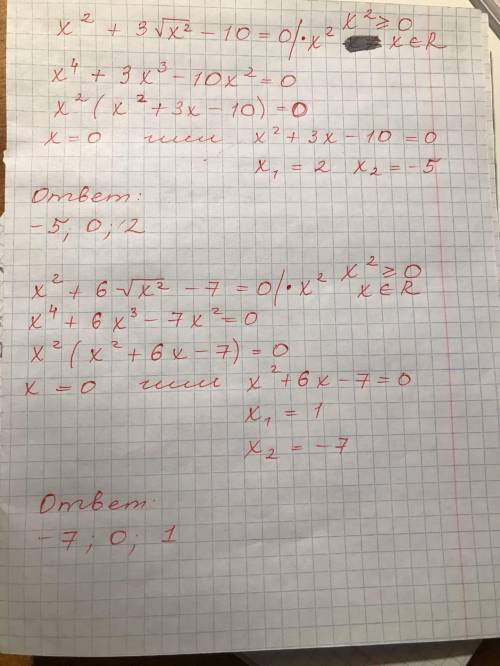 x² + 3√x² - 10 = 0 |·x² x² ≥ 0
x ∈ R
x⁴ + 3x³ - 10x² = 0
x² (x² + 3x - 10) = 0
x = 0 или x² + 3x - 10 = 0
x₁ = 2 x₂ = -5
Ответ:
-5; 0; 2
x² + 6√x² - 7 = 0 |·x² x² ≥ 0
x ∈ R
x⁴ + 6x³ - 7x² = 0
x² (x² + 6x - 7) = 0
x = 0 или x² + 6x - 7 = 0
x₁ = 1
x₂ = -7
Ответ:
-7; 0; 1